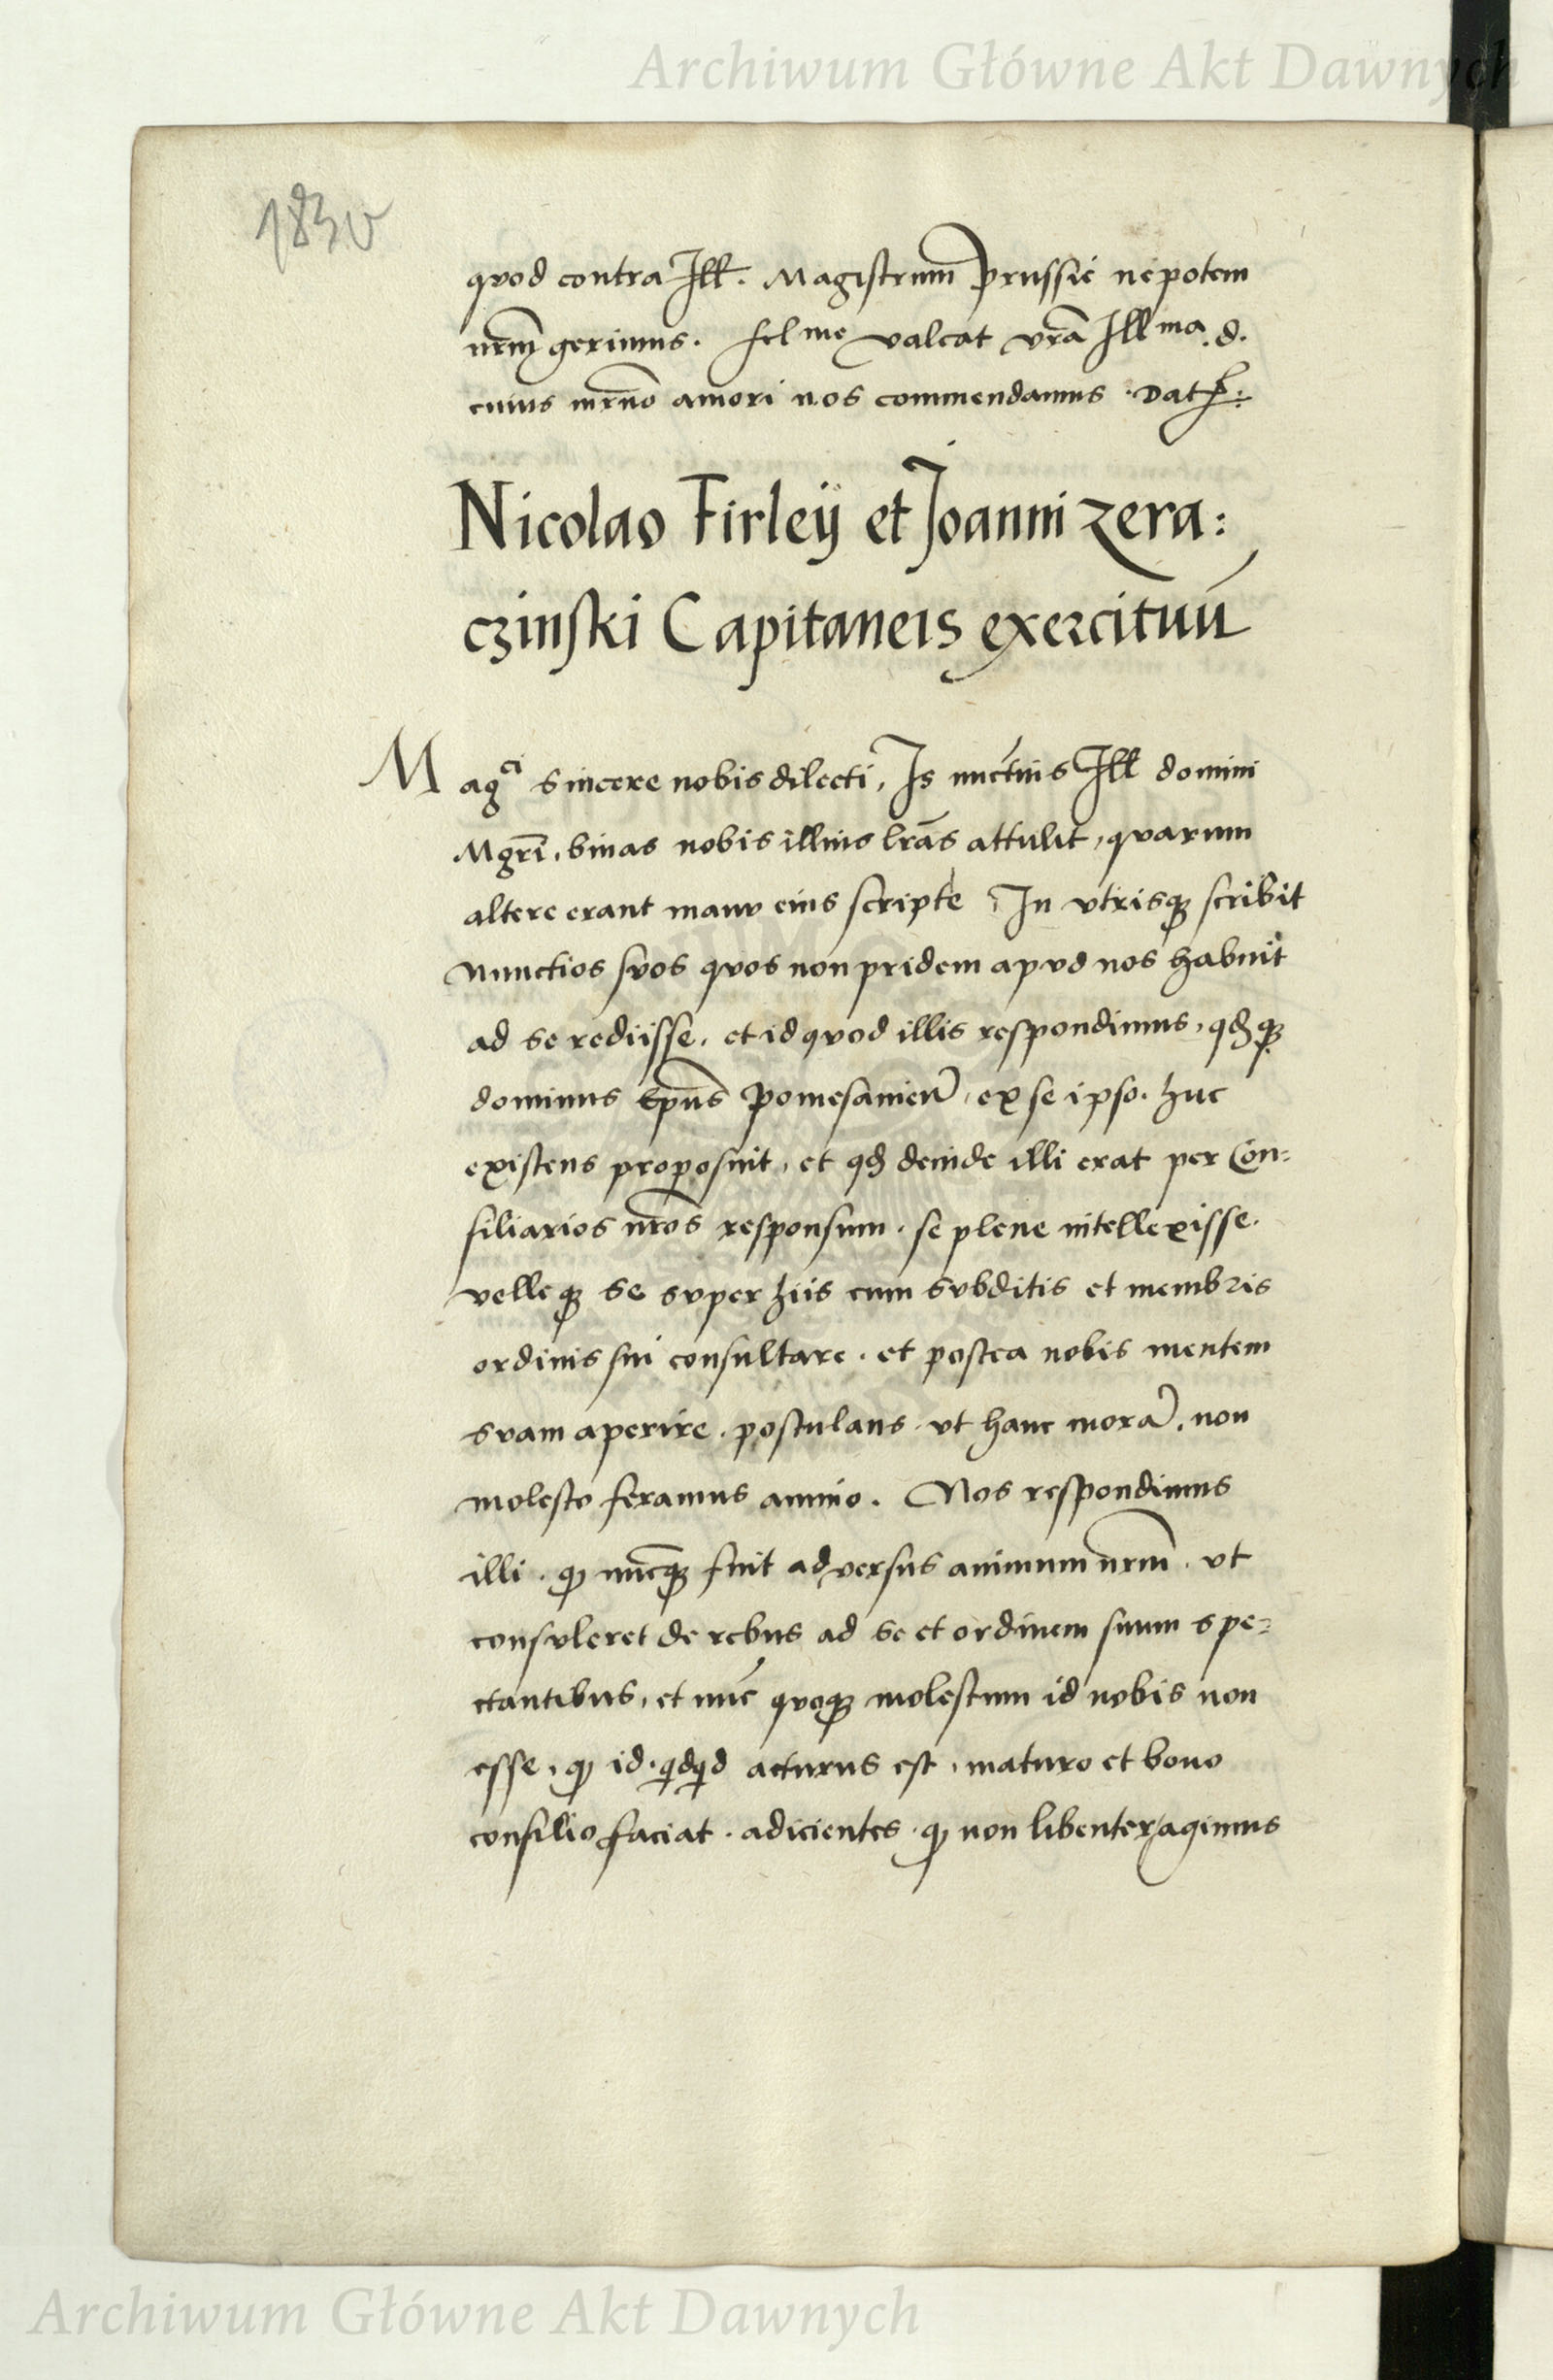 Archiwum Główne Akt Dawnych
183v
quod contra Ill. Magistrum Prussie nepotem
nrm̃ gerimus. felme valeat vrã Illma. d.
cuius mr̃no amori nos commendamus. Dat
Nicolao Firleÿ et Joanni zera:
czinski Capitaneis exercituũ
Magci sincere nobis dilecti, Is nuctius Ill domini
Mgrĩ, binas nobis illius lrãs attulit, quarum
altere erant manu eius scripte, In vtrisqꝫ scribit
nunctios suos quos non pridem apud nos habuit
ad se rediisse, et id quod illis respondimus, qđqꝫ
dominus Epũs Pomesanień, ex se ipso. huc
existens proposuit, et qđ deinde illi erat per Con=
siliarios nr̃os responsum. se plene intellexisse.
velleqꝫ se super hiis cum subditis et membris
ordinis sui consultare. et postea nobis mentem
suam aperire. postulans. vt hanc morã, non
molesto feramus animo. Nos respondimus
illi. qꝫ nũcqꝫ fuit adversus animum nrm̃. vt
consuleret de rebus ad se et ordinem suum spe=
ctantibus, et nũc quoqꝫ molestum id nobis non
esse, qꝫ id. qdqd acturus est, maturo et bono
consilio faciat. adicientes. qꝫ non libenter agimus
Archiwum Główne Akt Dawnych